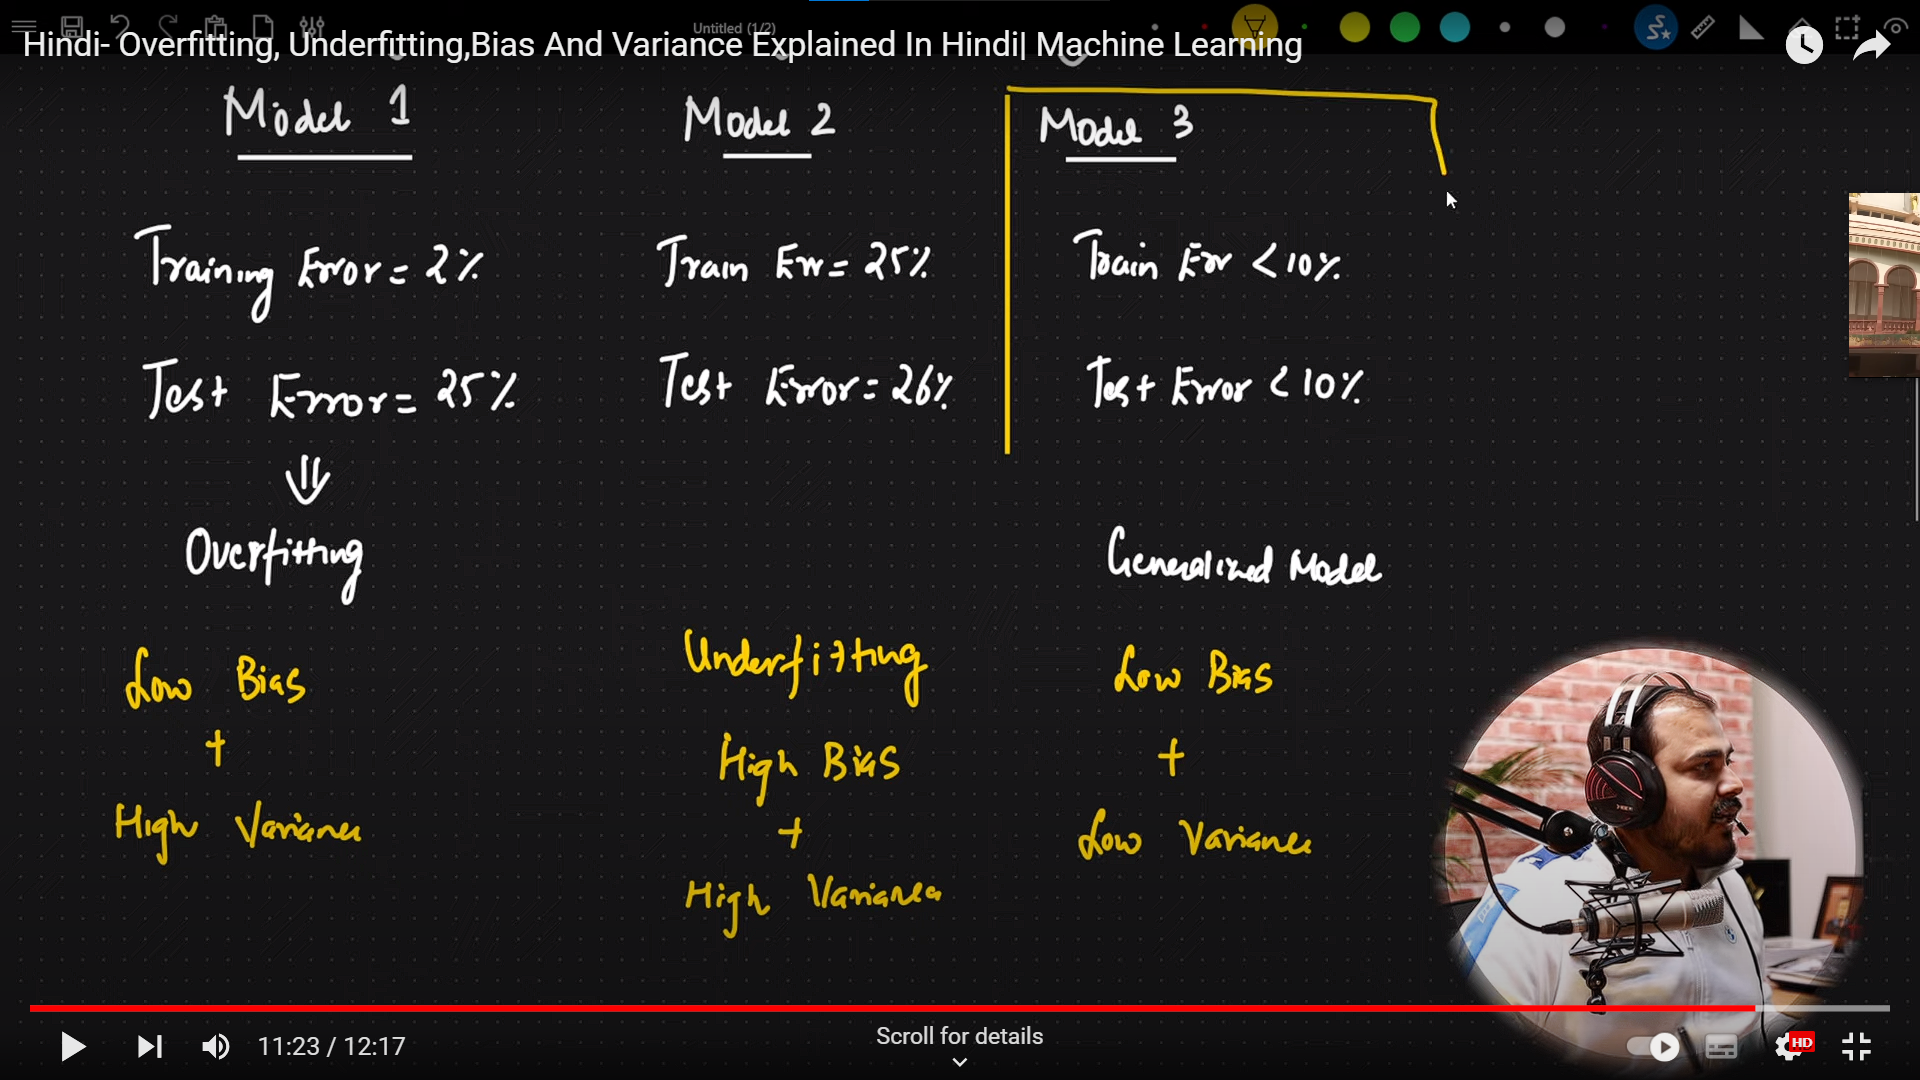 Untitled (1/2)
Hindi- Overfitting, Underfitting,Bias And Variance Explained In Hindi| Machine Learning
Model 1
Training Error = 2%
Test Error = 25%
Overfitting
Low Bias
+
High Variance
Model 2
Train Err = 25%
Test Error = 26%
Underfitting
High Bias
+
High Variance
Model 3
Train Err < 10%
Test Error < 10%
Generalized Model
Low Bias
+
Low Variance
11:23 / 12:17
Scroll for details
HD